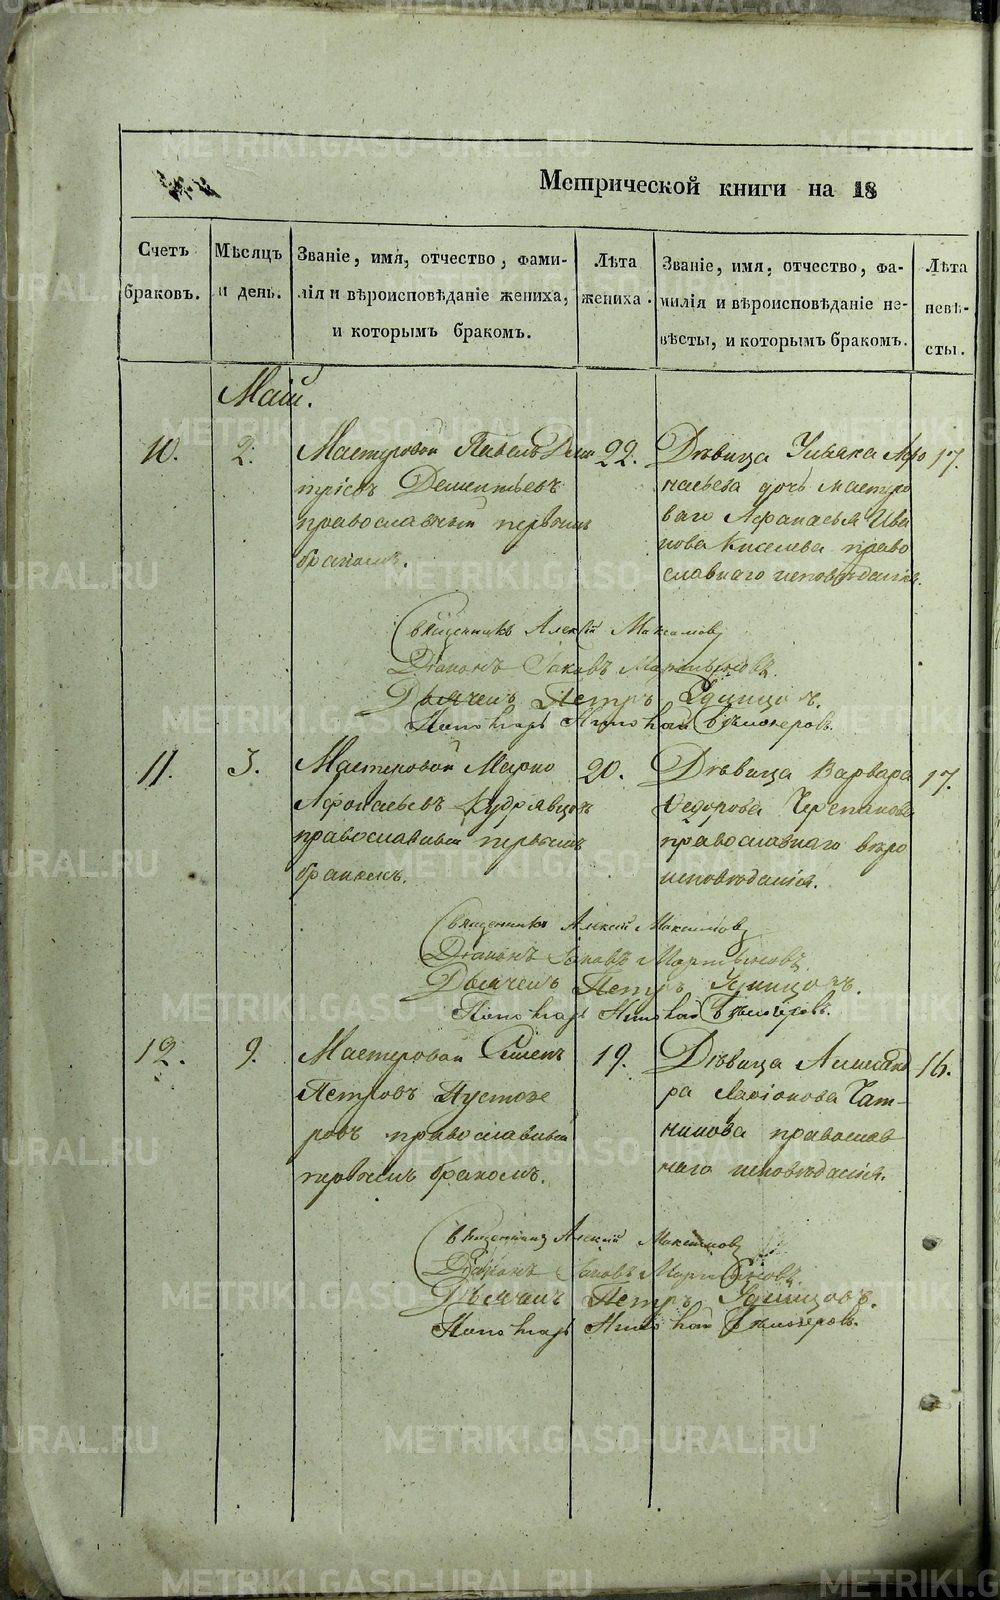 Метрической книги на 18
Счетъ браковъ.
Мѣсяцъ и день.
Званіе, имя, отчество, фами-
лія и вѣроисповѣданіе жениха,
и которымъ бракомъ.
Лѣта жениха.
Званіе, имя, отчество, фа-
милія и вѣроисповѣданіе не-
вѣсты, и которымъ бракомъ.
Лѣта невѣ-
сты.
Маій.
10.
2.
Мастеровой Павелъ Дми
тріевъ Дементьевъ
православный первымъ
бракомъ.
22.
Дѣвица Ульяна Афо
насьева дочь мастеро
ваго Афанасья Ива
нова Киселева право
славнаго исповѣданія.
17.
Священникъ Алексій Максимовъ
Діаконъ Іаковъ Мартыновъ.
Дьячекъ Петръ Удинцовъ.
Пономарь Николай
11.
3.
Мастеровой Марко
Афонасьевъ Кудрявцовъ
православный первымъ
бракомъ.
20.
Дѣвица Варвара
Ѳедорова Черепанова
православнаго вѣро
исповѣданія.
17.
Священникъ Алексій Максимовъ
Діаконъ Іаковъ Мартыновъ.
Дьячекъ Петръ Удинцовъ.
Пономарь Николай
12.
9.
Мастеровой Семенъ
Петровъ Пустозе
ровъ православный
первымъ бракомъ.
19.
Дѣвица Александ
ра Ларіонова
православ
наго исповѣданія.
16.
Священникъ Алексій Максимовъ
Діаконъ Іаковъ Мартыновъ.
Дьячекъ Петръ Удинцовъ.
Пономарь Николай
METRIKI.GASO-URAL.RU